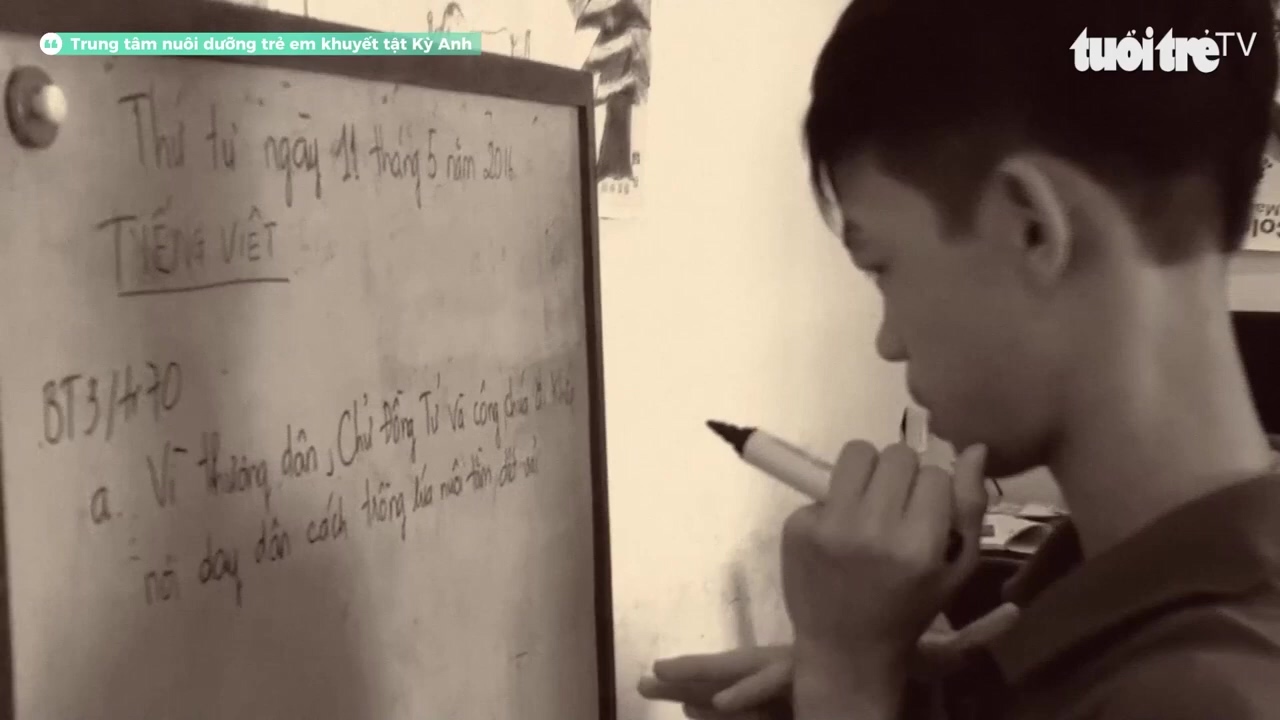 Trung tâm nuôi dưỡng trẻ em khuyết tật Kỳ Anh
tuổi trẻ TV
Thứ tư ngày 11 tháng 5 năm 2016
TIẾNG VIỆT
BT3/tr70
a. Vì thương dân, Chử Đồng Tử và công chúa đi khắp
nơi dạy dân cách trồng lúa nuôi tằm, dệt vải